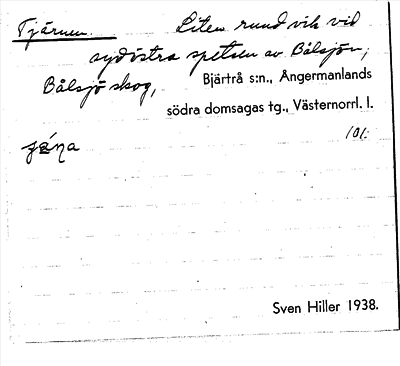 Tjärnen Liten rund vik vid
sydöstra spetsen av Bålsjön,
Bålsjö skog, Bjärtrå s:n., Ångermanlands
södra domsagas tg., Västernorrl. l.
101.
Sven Hiller 1938.